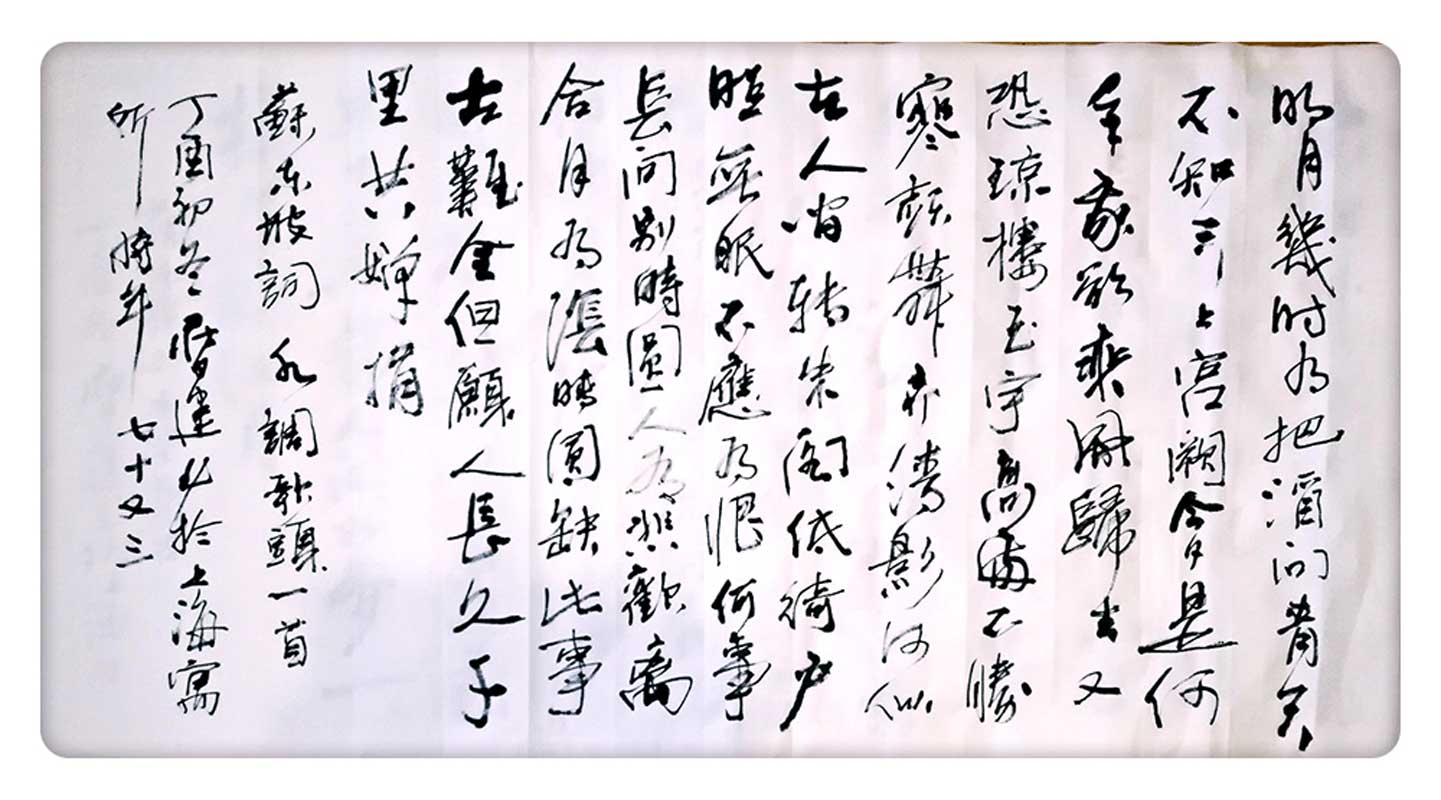 明月幾时有把酒问青天
不知天上宫阙今夕是何
年我欲乘風歸去又
恐琼樓玉宇高處不勝
寒起舞弄清影何似
在人间转朱阁低绮户
照無眠不應有恨何事
長向别時圓人有悲歡離
合月有陰晴圓缺此事
古難全但願人長久千
里共嬋娟
蘇东坡詞 水調歌頭一首
丁酉初冬 建 於上海寓
所 時年 七十又三